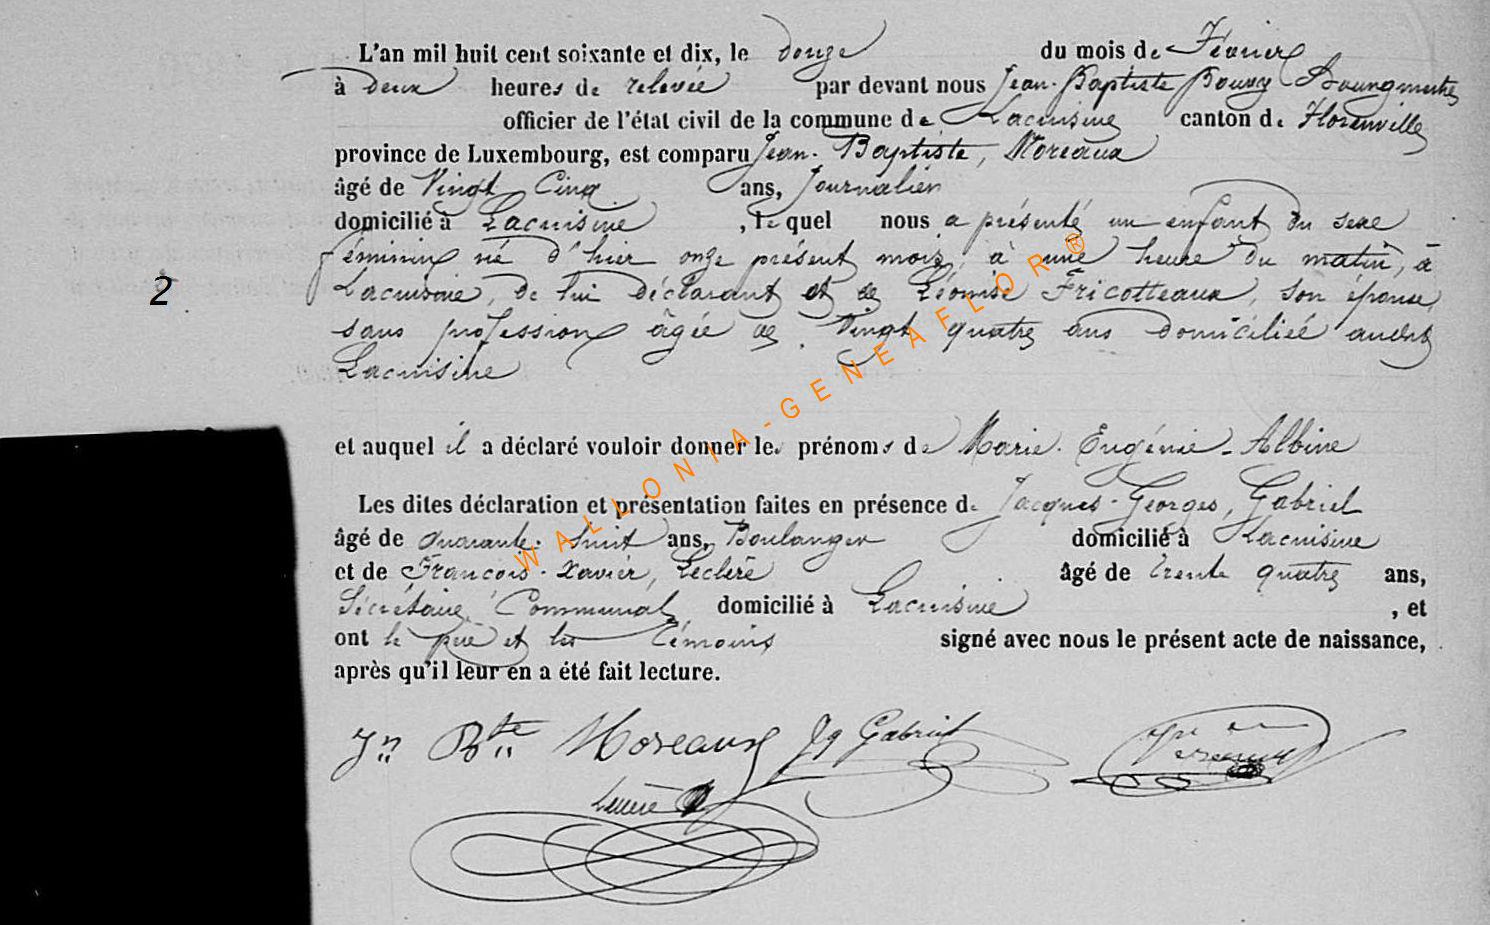 L'an mil huit cent soixante et dix, le douze du mois de Février
à deux heures de relevée par devant nous Jean-Baptiste Bourgmestre
officier de l'état civil de la commune de Lacuisine canton de Florenville
province de Luxembourg, est comparu Jean-Baptiste, Moreaux
âgé de Vingt Cinq ans, Journalier
domicilié à Lacuisine, lequel nous a présenté un enfant du sexe
féminin né d'hier onze présent mois, à une heure du matin, à
Lacuisine, de lui déclarant et de Léonise Fricotteaux, son épouse,
sans profession âgée de Vingt quatre ans domiciliée audit
Lacuisine
2
et auquel il a déclaré vouloir donner les prénoms de Marie-Eugénie-Albine
Les dites déclaration et présentation faites en présence de Jacques-Georges, Gabriel
âgé de quarante-huit ans, Boulanger domicilié à Lacuisine
et de François-Xavier, Leclère âgé de trente quatre ans,
Sécrétaire Communal domicilié à Lacuisine, et
ont le père et les témoins signé avec nous le présent acte de naissance,
après qu'il leur en a été fait lecture.
Jn Bte Moreaux Jq Gabriel
WALLONIA-GENEAFLOR®